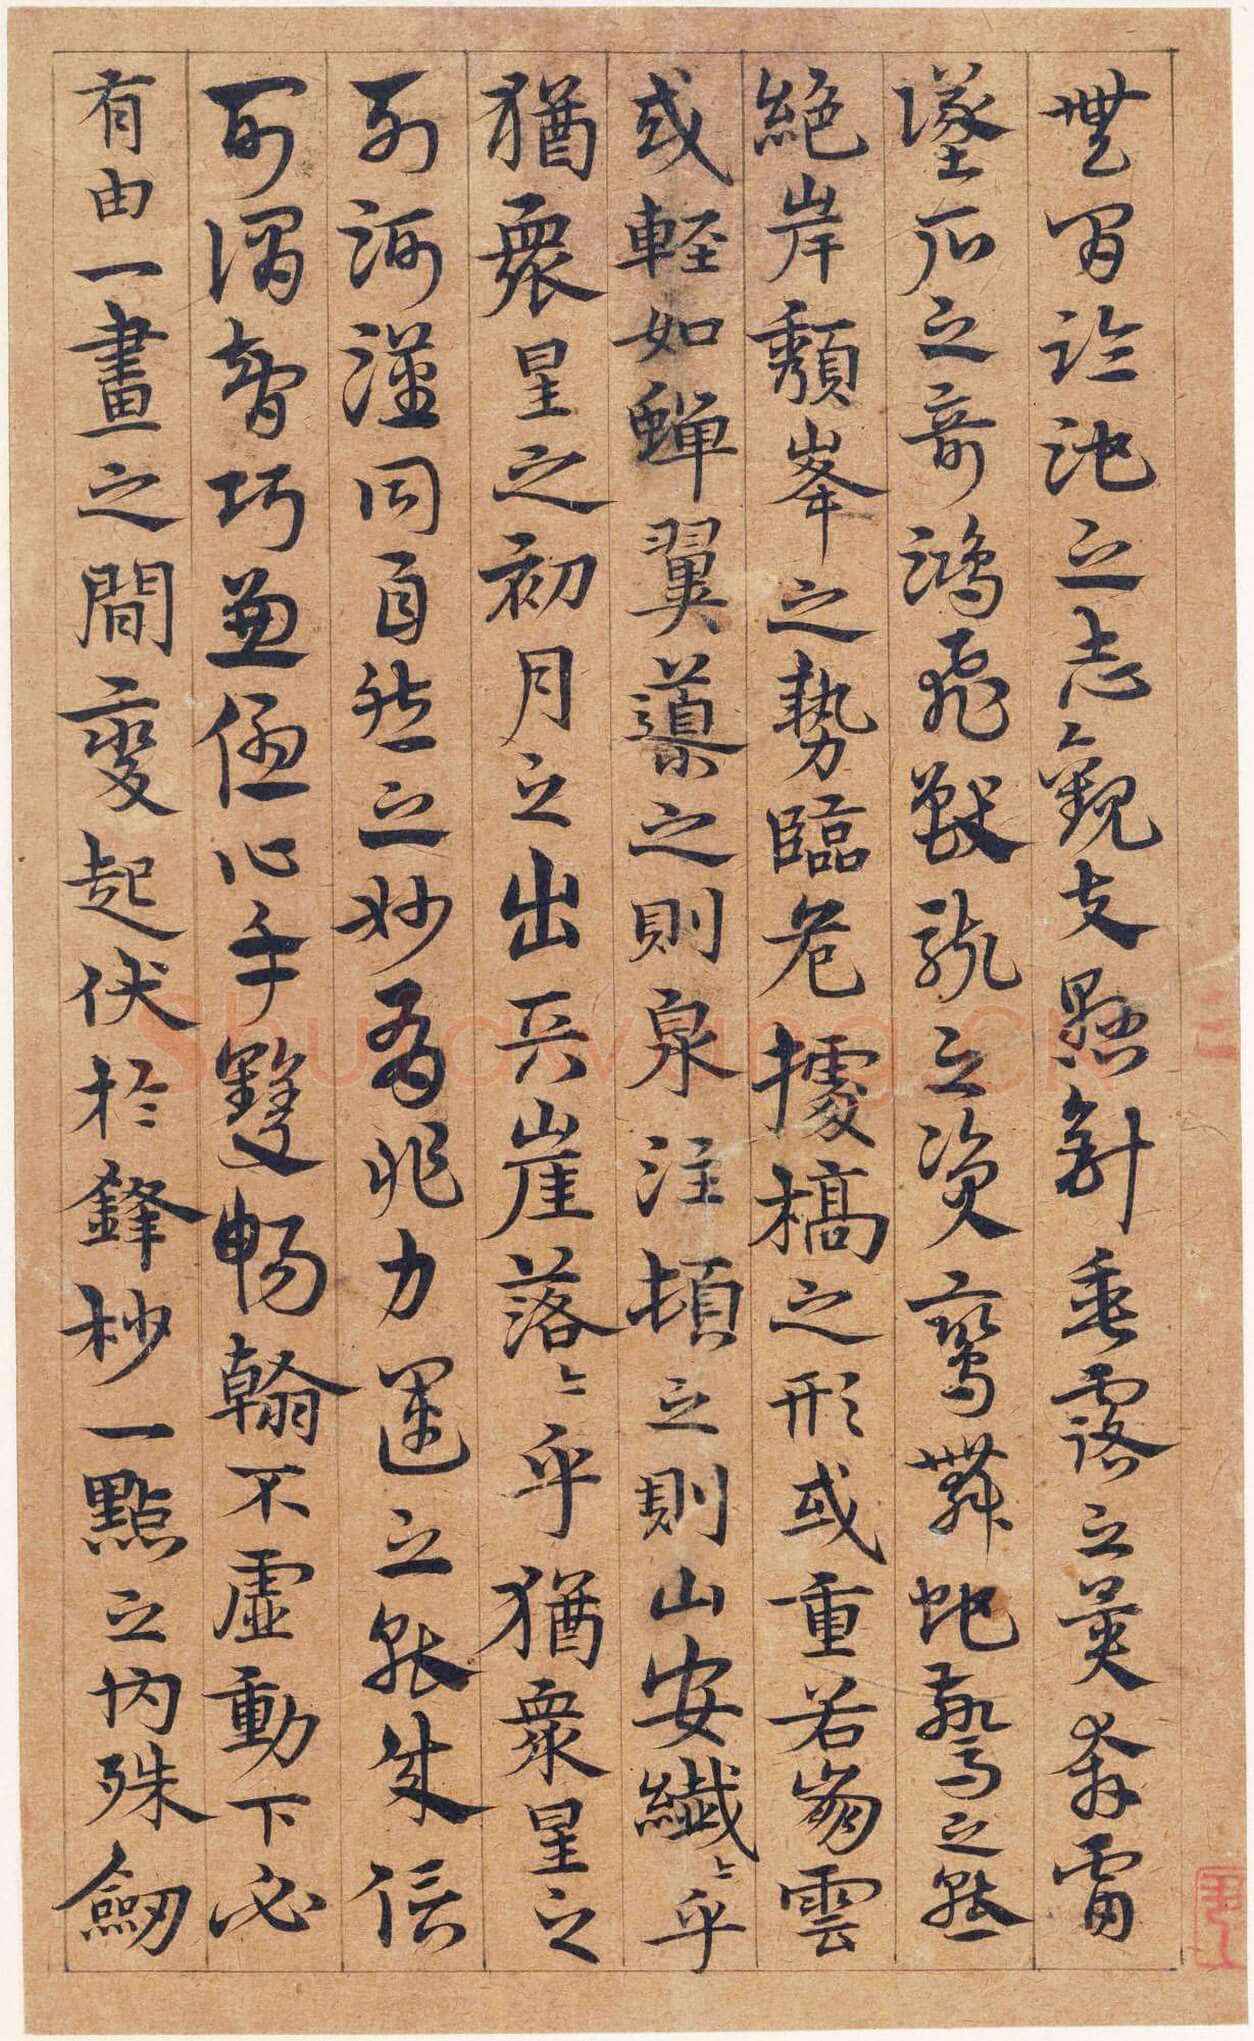 無間臨池之志觀夫懸針垂露之異奔雷
墜石之奇鴻飛獸駭之資鸞舞蛇驚之態
絕岸頹峯之勢臨危據槁之形或重若崩雲
或輕如蟬翼導之則泉注頓之則山安纖〻乎
猶眾星之初月之出天崖落〻乎猶眾星之
列河漢同自然之妙有非力運之能成信
可謂智巧兼優心手雙暢翰不虛動下必
有由一畫之間變起伏於鋒杪一點之內殊劒